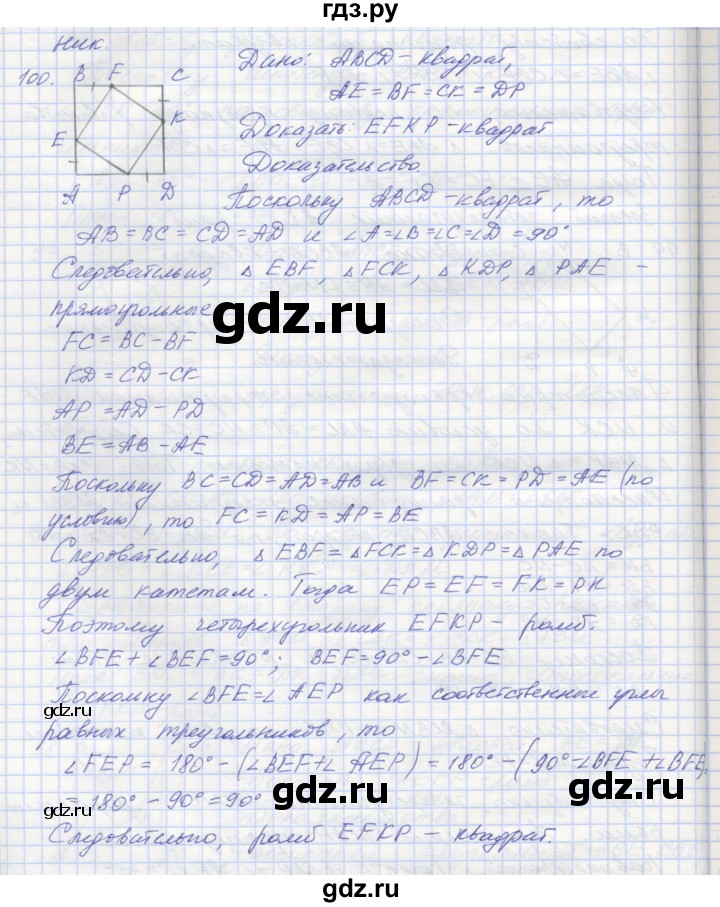 гдз.ру
ник.
100.
B F C
K
E
A P D
Дано: ABCD - квадрат,
AE = BF = CK = DP
Доказать: EFKP - квадрат
Доказательство.
Поскольку ABCD - квадрат, то
AB = BC = CD = AD и ∠A = ∠B = ∠C = ∠D = 90°
Следовательно, △ EBF, △ FCK, △ KDP, △ PAE -
прямоугольные
gdz.ru
FC = BC - BF
KD = CD - CK
AP = AD - PD
BE = AB - AE
Поскольку BC = CD = AD = AB и BF = CK = PD = AE (по
условию), то FC = KD = AP = BE
Следовательно, △ EBF = △ FCK = △ KDP = △ PAE по
двум катетам. Тогда EP = EF = FK = PK
Поэтому четырехугольник EFKP - ромб.
∠BFE + ∠BEF = 90°; BEF = 90° - ∠BFE
Поскольку ∠BFE = ∠ AEP как соответственные углы
gdz.ru
равных треугольников, то
∠FEP = 180° - (∠BEF + ∠ AEP) = 180° - (90° - ∠BFE + ∠BFE)
= 180° - 90° = 90°
gdz.ru
gdz.ru
Следовательно, ромб EFKP - квадрат.
gdz.ru